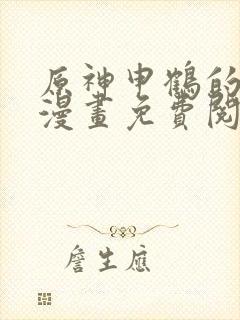 原神申鶴的
漫畫免費閱
詹生應